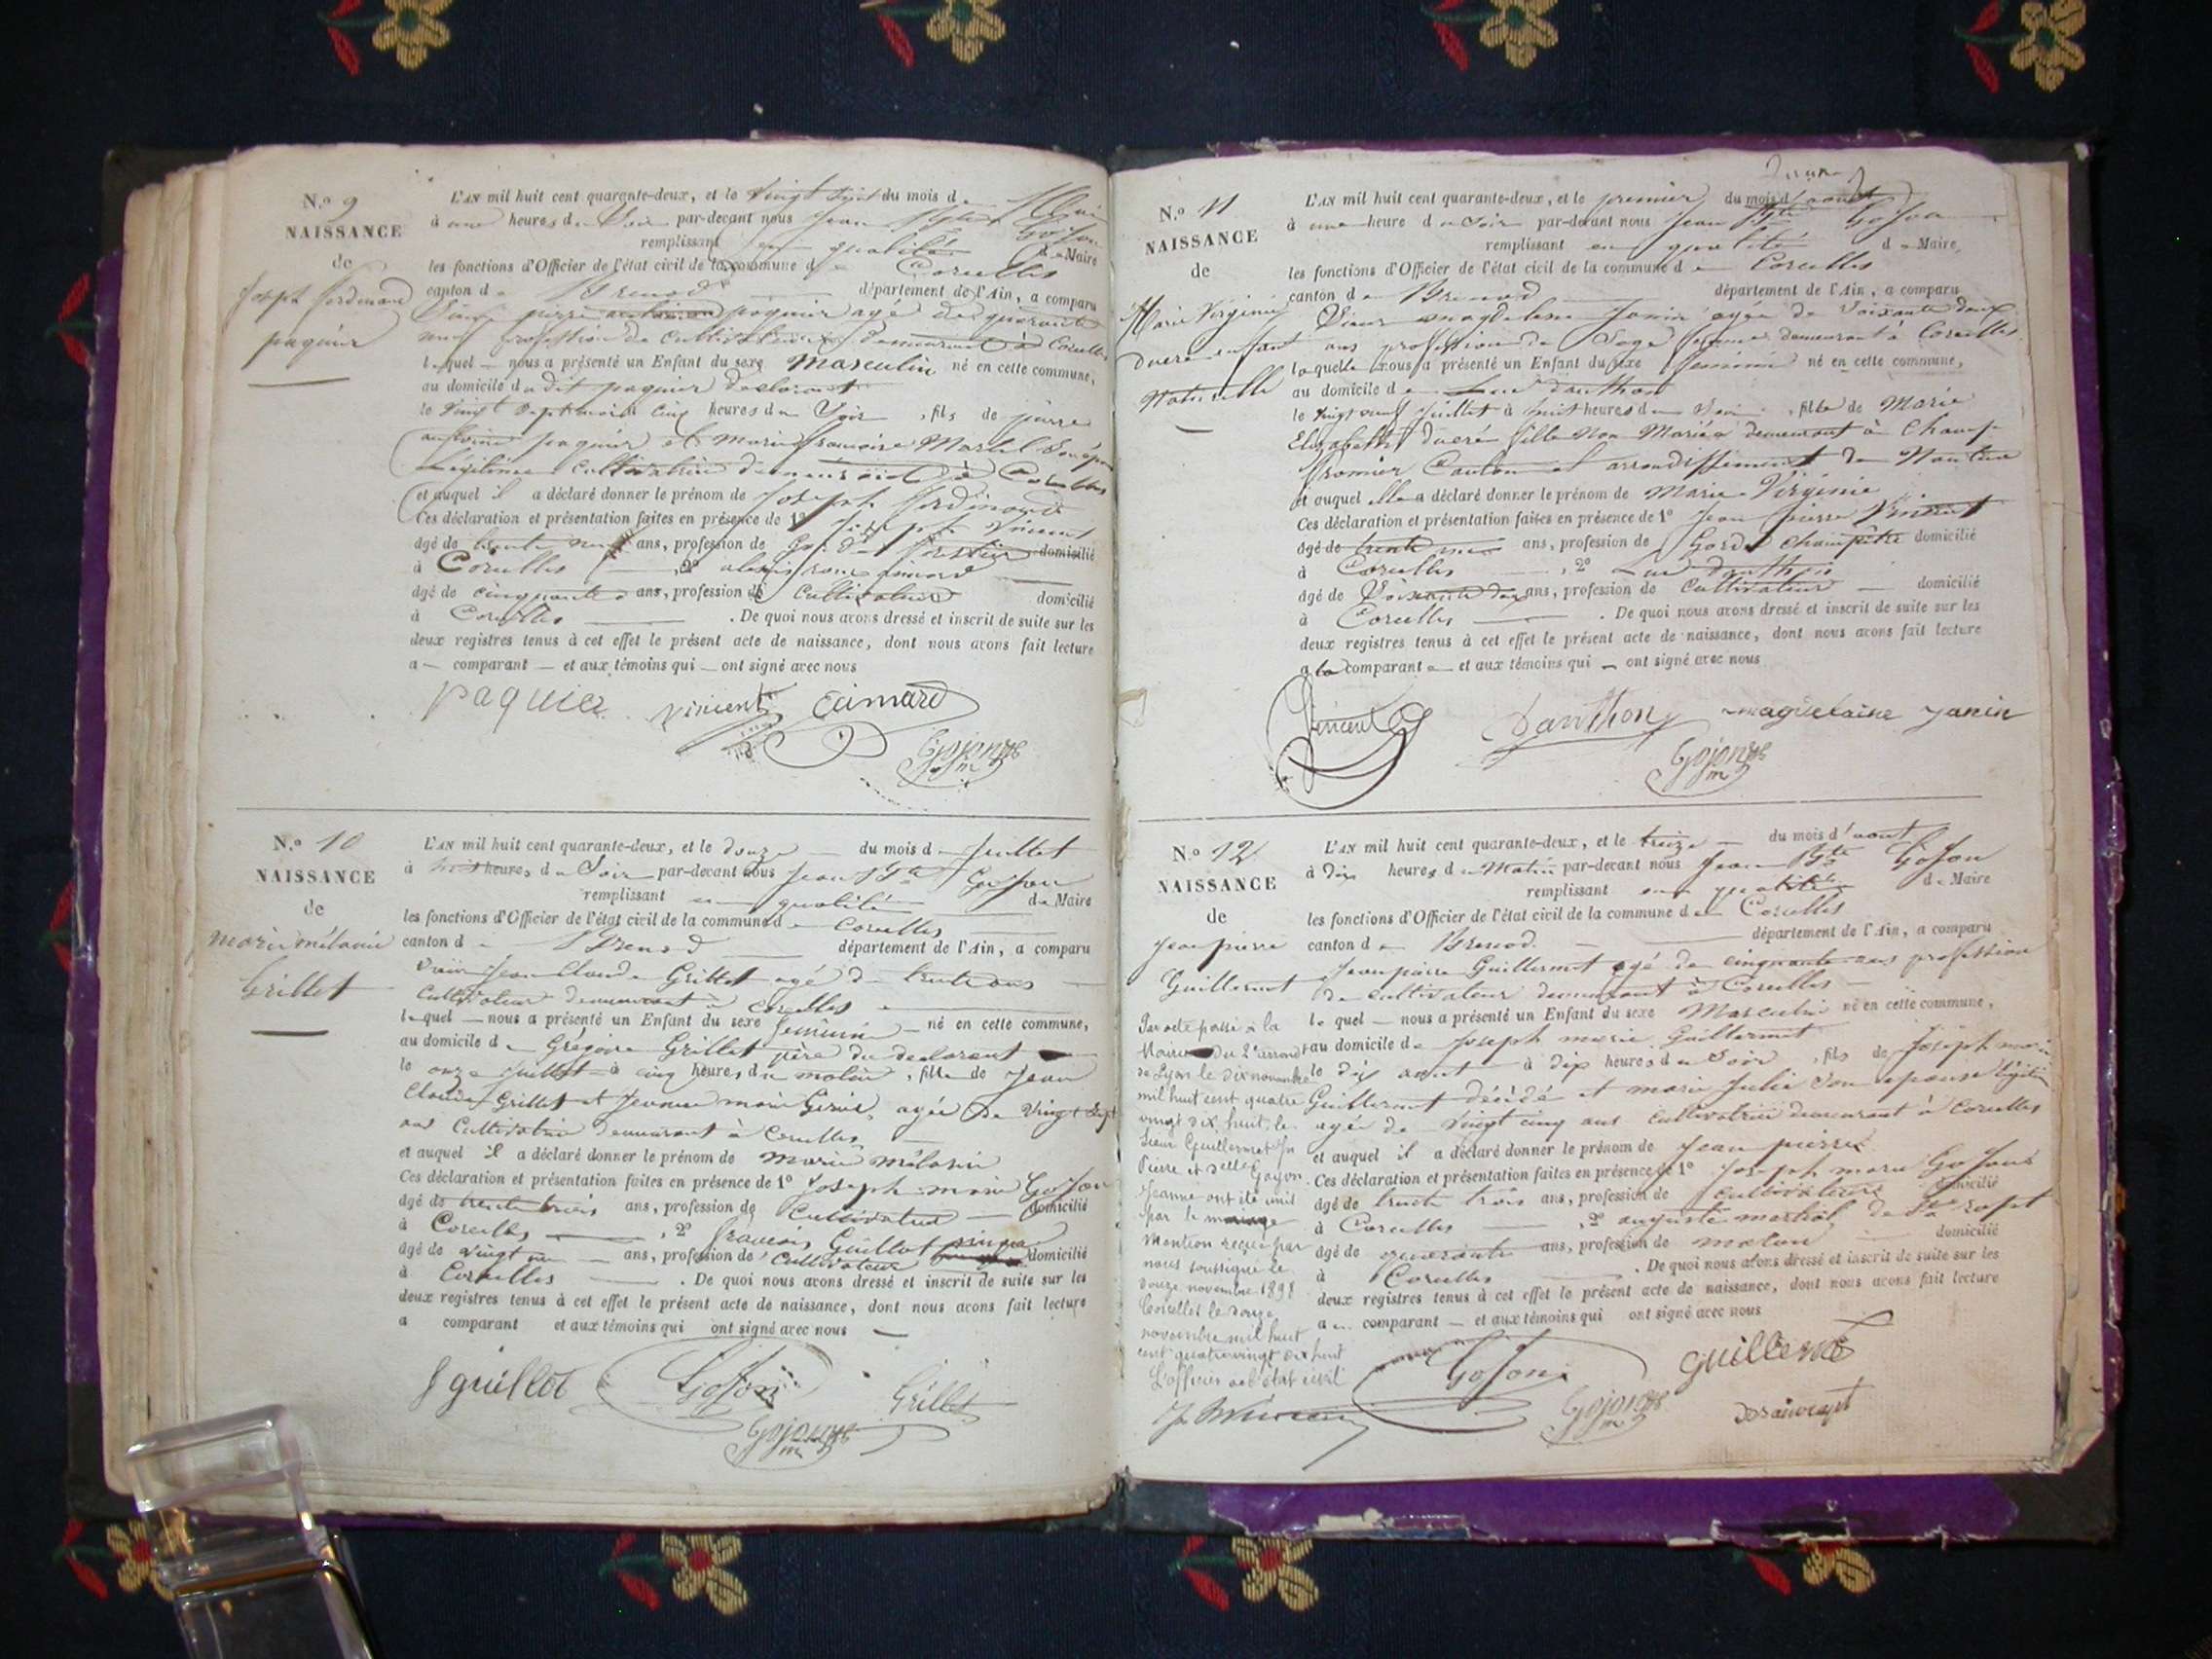 N.º 9
NAISSANCE
de
Joseph ferdinand
paquier
L'AN mil huit cent quarante-deux, et le Vingt Sept du mois de Mai
à une heures du Soir par-devant nous Jean Gojon
remplissant en qualité de Maire
les fonctions d'Officier de l'état civil de la commune de Corcelles
canton de Brenod département de l'Ain, a comparu
Sieur pierre antoine paquier agé de quarante
neuf profession de cultivateur demeurant à Corcelles
lequel nous a présenté un Enfant du sexe Masculin né en cette commune,
au domicile du dit paquier declarant
le Vingt Sept cinq heures du Soir, fils de pierre
antoine paquier et Marie françoise Martel Son épouse
Légitime Cultivatrice demeurant à Corcelles
et auquel il a déclaré donner le prénom de Joseph ferdinand
Ces déclaration et présentation faites en présence de 1º Joseph Vincent
âgé de trente neuf ans, profession de Garde forestier domicilié
à Corcelles, 2º alexis
âgé de cinquante ans, profession de Cultivateur domicilié
à Corcelles. De quoi nous avons dressé et inscrit de suite sur les
deux registres tenus à cet effet le présent acte de naissance, dont nous avons fait lecture
a comparant et aux témoins qui ont signé avec nous
paquier vincent Eimard
Gojon
m
N.º 10
NAISSANCE
de
marie mélanie
Grillet
L'AN mil huit cent quarante-deux, et le douze du mois de Juillet
à huit heures du Soir par-devant nous Jean Bte Gojon
remplissant en qualité de Maire
les fonctions d'Officier de l'état civil de la commune de Corcelles
canton de Brenod département de l'Ain, a comparu
Sieur Jean Claude Grillet agé de trente ans
Cultivateur demeurant à Corcelles
lequel nous a présenté un Enfant du sexe feminin né en cette commune,
au domicile de Grégoire Grillet père du declarant
le onze Juillet à cinq heures du matin, fille de Jean
Claude Grillet et Jeanne marie agée de Vingt Sept
ans Cultivatrice demeurant à Corcelles
et auquel il a déclaré donner le prénom de marie mélanie
Ces déclaration et présentation faites en présence de 1º Joseph marie Gojon
âgé de trente trois ans, profession de Cultivateur domicilié
à Corcelles, 2º françois Guillot
âgé de vingt ans, profession de Cultivateur domicilié
à Corcelles. De quoi nous avons dressé et inscrit de suite sur les
deux registres tenus à cet effet le présent acte de naissance, dont nous avons fait lecture
a comparant et aux témoins qui ont signé avec nous
f guillot Gojon Grillet
Gojon
m
N.º 11
NAISSANCE
de
Marie Virginie
ducré enfant
Naturelle
L'AN mil huit cent quarante-deux, et le premier du mois d'aout
à une heure du Soir par-devant nous Jean Bte Gojon
remplissant en qualité de Maire,
les fonctions d'Officier de l'état civil de la commune de Corcelles
canton de Brenod département de l'Ain, a comparu
magdelene Janin agée de Soixante deux
ans profession de Sage femme demeurant à Corcelles
laquelle nous a présenté un Enfant du sexe feminin né en cette commune,
au domicile de Luc danthon
le vingt neuf Juillet à huit heures du Soir, fille de Marie
Elizabeth ducré fille Non Mariée demeurant à Champ
fromier Canton et arrondissement de Nantua
et auquel elle a déclaré donner le prénom de Marie Virginie
Ces déclaration et présentation faites en présence de 1º Jean pierre Vincent
âgé de trente ans, profession de Garde champêtre domicilié
à Corcelles, 2º Luc danthon
âgé de Soixante deux ans, profession de Cultivateur domicilié
à Corcelles. De quoi nous avons dressé et inscrit de suite sur les
deux registres tenus à cet effet le présent acte de naissance, dont nous avons fait lecture
a la comparante et aux témoins qui ont signé avec nous
Vincent Danthon magdelaine Janin
Gojon
m
N.º 12
NAISSANCE
de
Jean pierre
Guillermet
L'AN mil huit cent quarante-deux, et le treize du mois d'aout
à dix heures du Matin par-devant nous Jean Bte Gojon
remplissant en qualité de Maire
les fonctions d'Officier de l'état civil de la commune de Corcelles
canton de Brenod département de l'Ain, a comparu
Jean pierre Guillermet agé de cinquante ans profession
de cultivateur demeurant à Corcelles
lequel nous a présenté un Enfant du sexe Masculin né en cette commune,
au domicile de Joseph marie Guillermet
le dix aout à dix heures du Soir, fils de Joseph marie
Guillermet décédé et marie Julie Son epouse légitime
agée de vingt cinq ans Cultivatrice demeurant à Corcelles
et auquel il a déclaré donner le prénom de Jean pierre
Ces déclaration et présentation faites en présence de 1º Joseph marie Gojon
âgé de trente trois ans, profession de Cultivateur domicilié
à Corcelles, 2º auguste martial
âgé de quarante ans, profession de domicilié
à Corcelles. De quoi nous avons dressé et inscrit de suite sur les
deux registres tenus à cet effet le présent acte de naissance, dont nous avons fait lecture
au comparant et aux témoins qui ont signé avec nous
Par acte passé à la
Mairie du 2e arrondt
de Lyon le dix novembre
mil huit cent quatre
vingt dix huit, le
sieur Guillermet Jn
Pierre et delle Goyon
Jeanne ont été unis
par le mariage
Mention reçue par
nous soussigné le
douze novembre 1898
Corcelles le douze
novembre mil huit
cent quatre vingt dix huit
L'officier de l'état civil
Gojon guillermet
Gojon
m